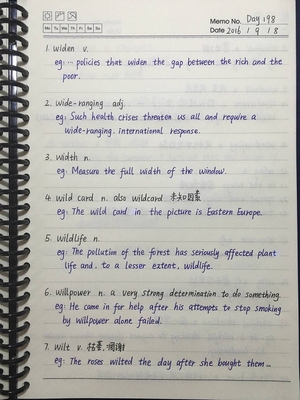 Memo No. Day 198
Mo Tu We Th Fr Sa Su
Date 2016 / 9 / 18
1. widen v.
eg: ... policies that widen the gap between the rich and the
poor.
2. wide-ranging adj.
eg: Such health crises threaten us all and require a
wide-ranging. international response.
3. width n.
eg: Measure the full width of the window.
4. wild card n. also wildcard 未知因素
eg: The wild card in the picture is Eastern Europe.
5. wildlife n.
eg: The pollution of the forest has seriously affected plant
life and. to a lesser extent, wildlife.
6. willpower n. a very strong determination to do something.
eg: He came in for help after his attempts to stop smoking
by willpower alone failed.
7. wilt v. 枯萎,凋谢
eg: The roses wilted the day after she bought them...